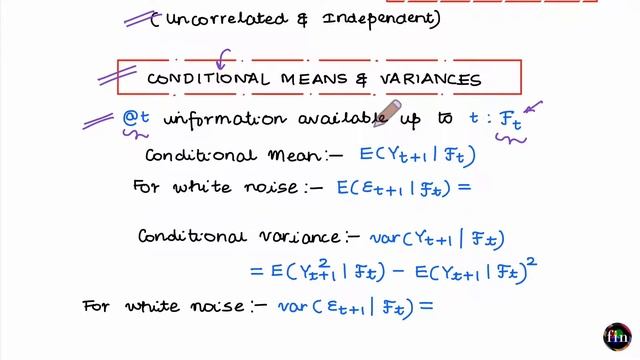 (Uncorrelated & Independent)
CONDITIONAL MEANS & VARIANCES
@t information available up to t : Ft
Conditional Mean:- E(Yt+1 | Ft)
For white noise:- E(εt+1 | Ft) =
Conditional variance:- var(Yt+1 | Ft)
= E(Y²t+1 | Ft) - E(Yt+1 | Ft)²
For white noise:- var(εt+1 | Ft) =
fin